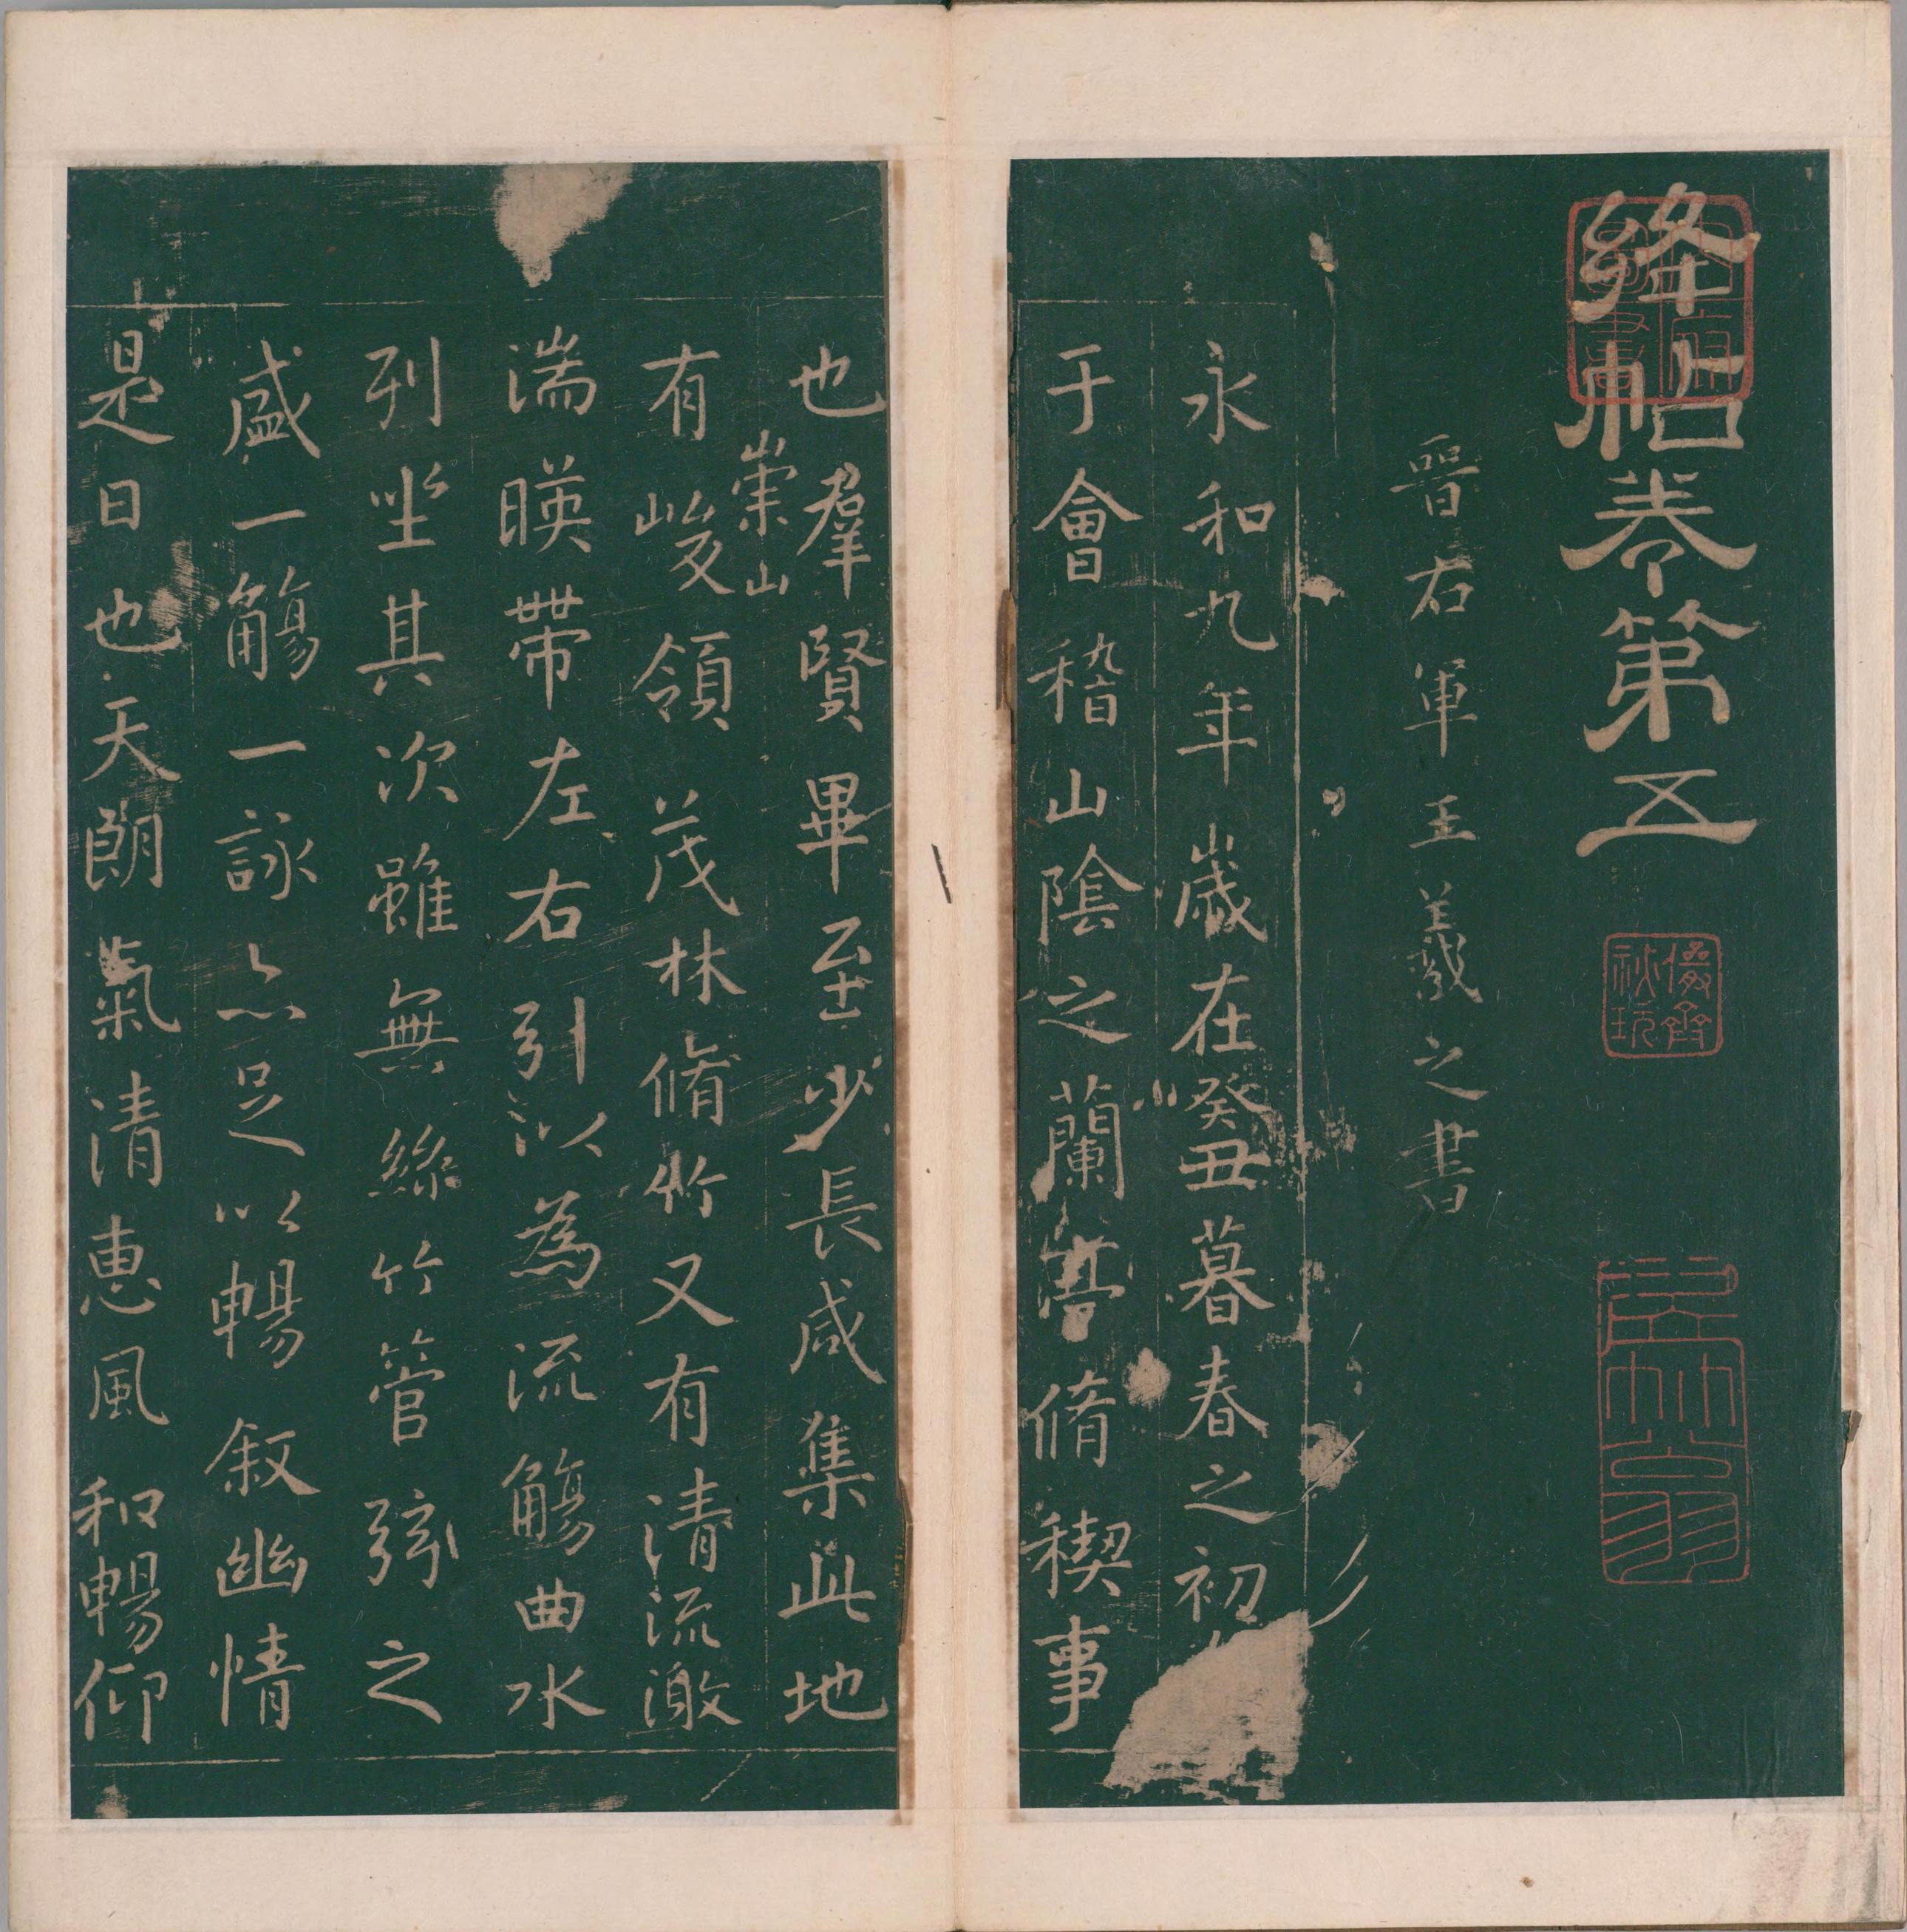 絳帖卷第五
晉右軍王羲之書
永和九年歲在癸丑暮春之初
于會稽山陰之蘭亭脩稧事
也羣賢畢至少長咸集此地
有崇山峻領茂林脩竹又有清流激
湍暎帶左右引以為流觴曲水
列坐其次雖無絲竹管弦之
盛一觴一詠亦足以暢叙幽情
是日也天朗氣清惠風和暢仰
儼齋秘玩